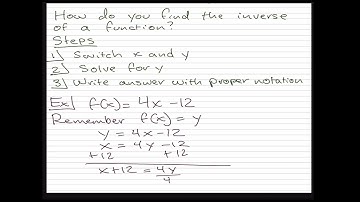 How do you find the inverse
of a function?
Steps
1) Switch x and y
2) Solve for y
3) Write answer with proper notation
Ex) f(x) = 4x - 12
Remember f(x) = y
y = 4x - 12
x = 4y - 12
+12 +12
x + 12 = 4y
4